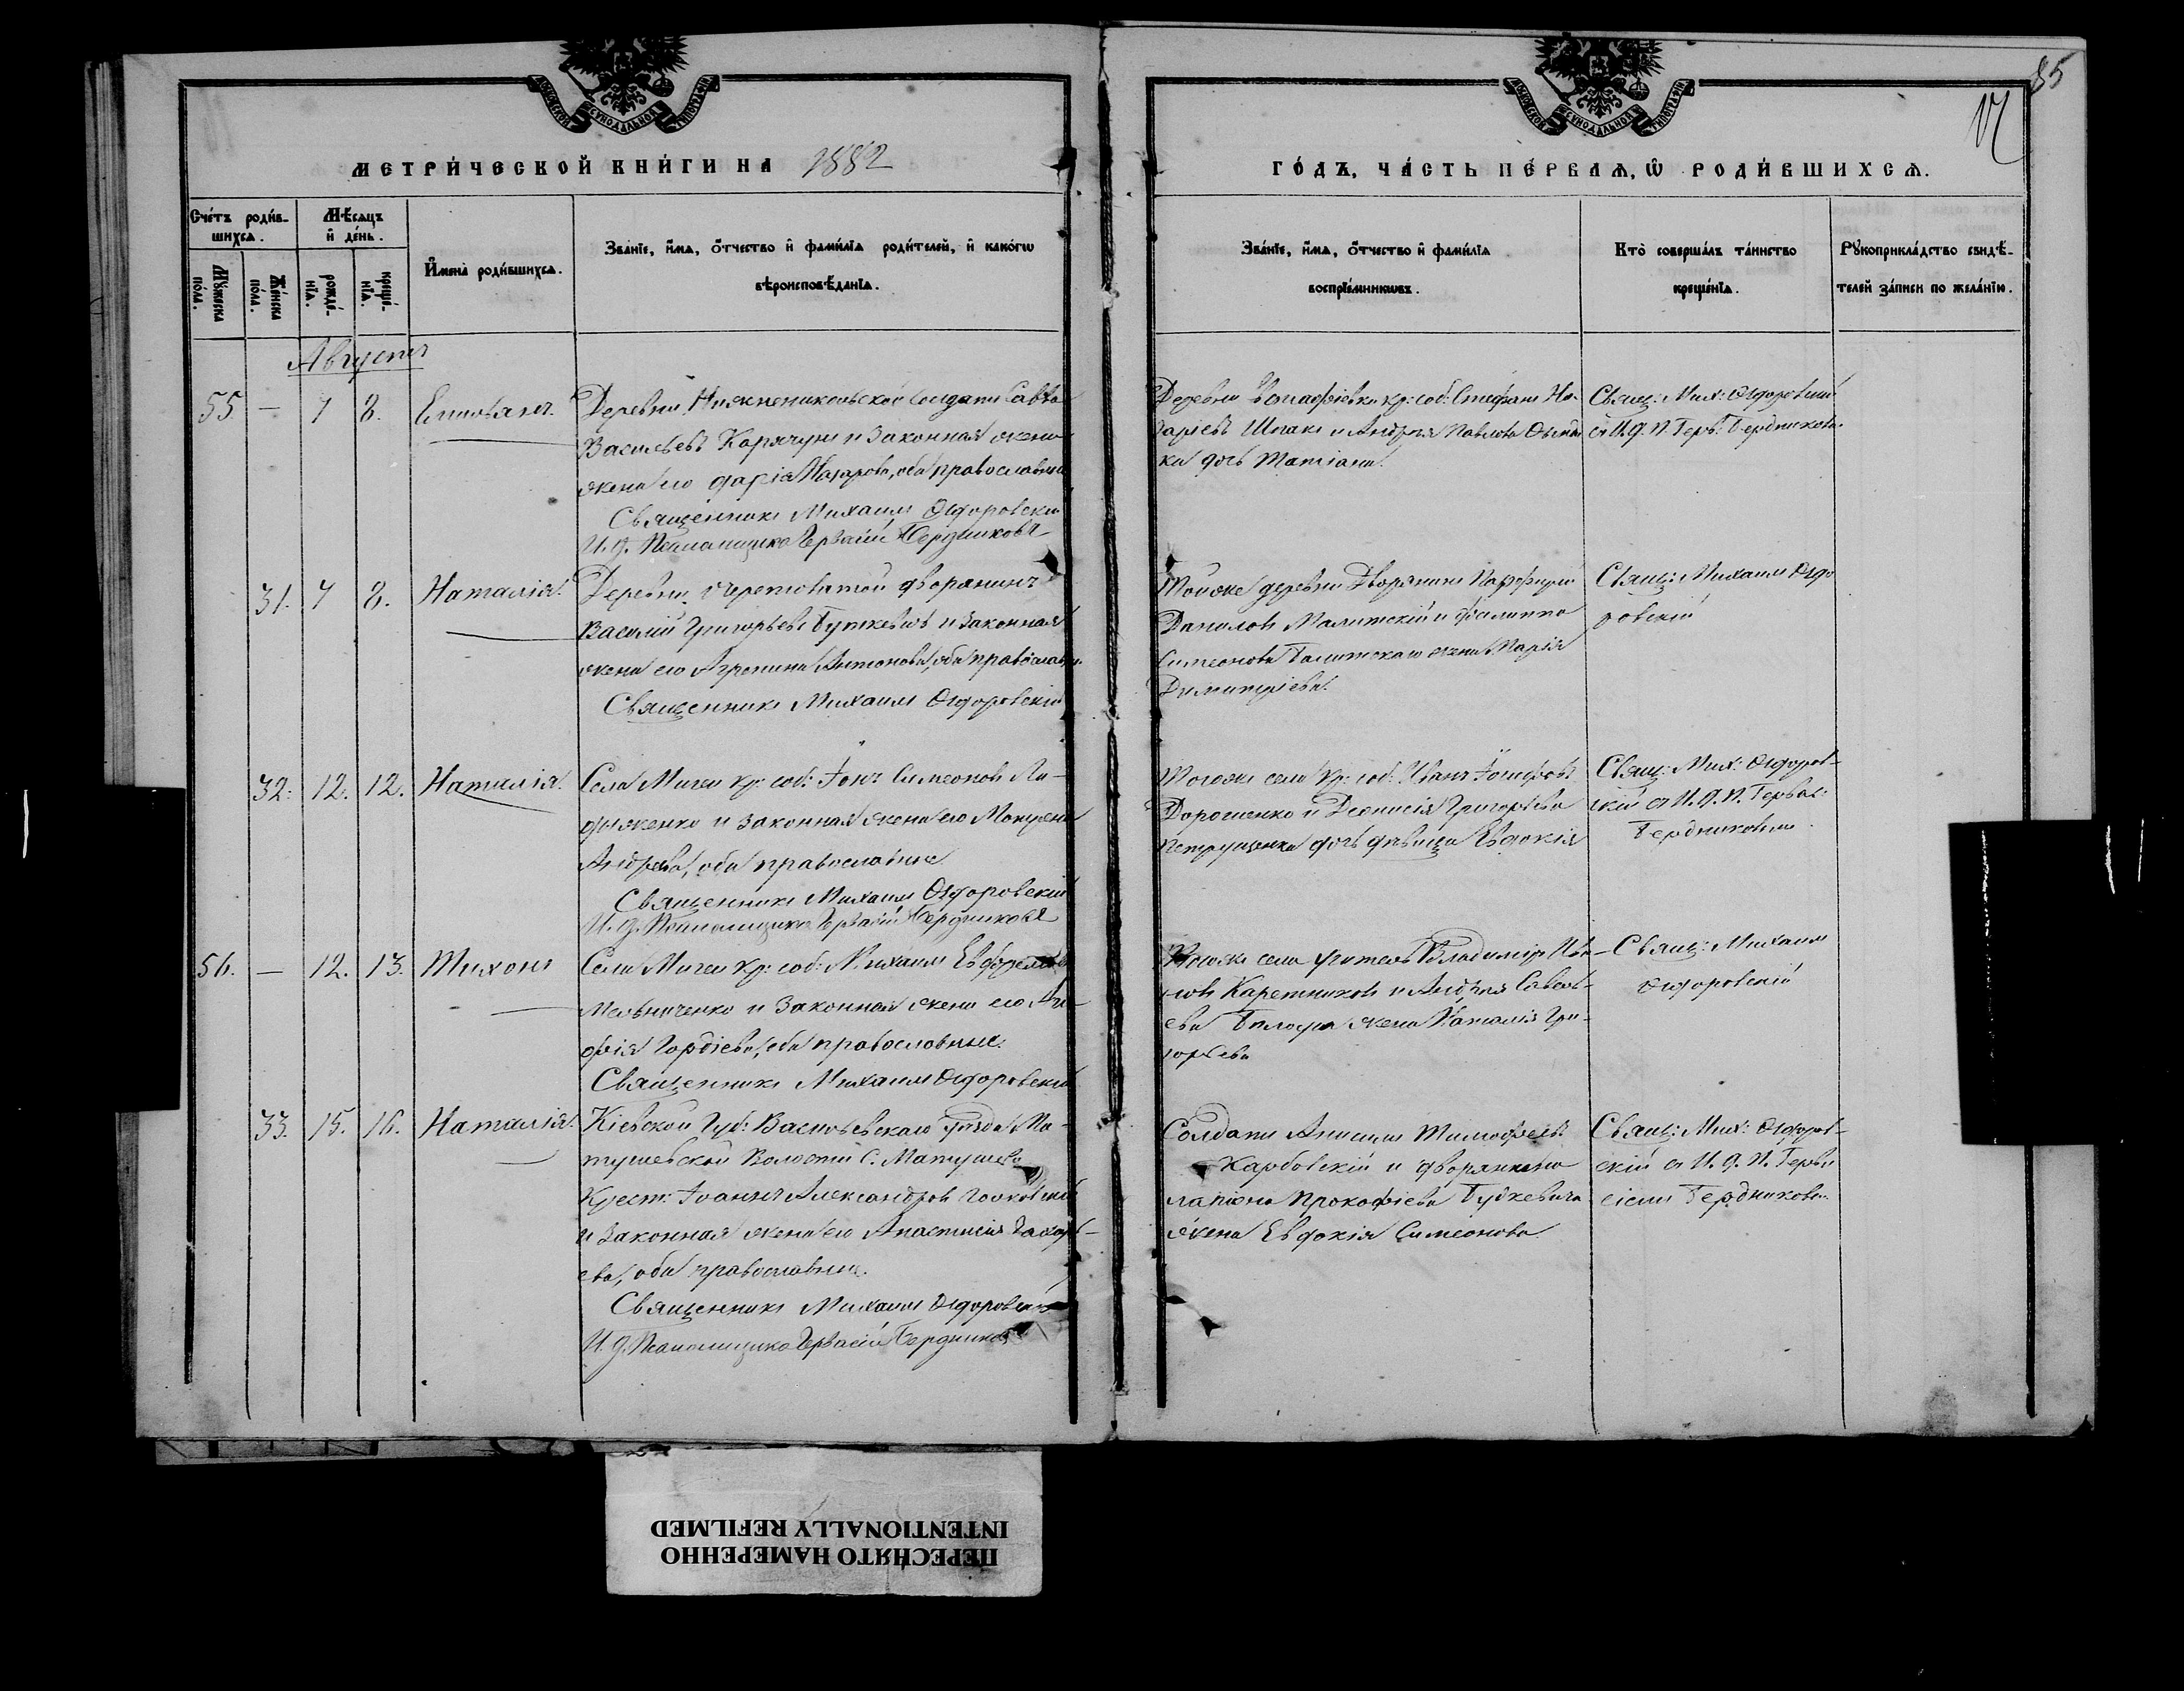 85
17
МЕТРИ́ЧЕСКОЙ КНИ́ГИ НА 1882
ГО́ДЪ, ЧА́СТЬ ПЕ́РВАѦ, Ѡ҆ РОДИ́ВШИХСѦ.
Сче́тъ роди́в-
шихсѧ.
Мꙋ́жеска
по́ла.
Же́нска
по́ла.
Мѣ́сѧцъ
и҆ де́нь.
рожде́-
нїѧ.
креще́-
нїѧ.
И҆мена̀ роди́вшихсѧ.
Зва́нїе, и҆́мѧ, ѻ҆́тчество и҆ фами́лїѧ роди́телей, и҆ како́гѡ
вѣроисповѣ́данїѧ.
Зва́нїе, и҆́мѧ, ѻ҆́тчество и҆ фами́лїѧ
воспрїе́мникѡвъ.
Кто̀ соверша́лъ та́инство
креще́нїѧ.
Рꙋкоприкла́дство свидѣ́-
телей за́писи по жела́нїю.
Августъ
55 — 7 8. Деревни солдатъ Савва
Васильевъ и законная
жена его Дарія Назарова, оба православные
Священникъ Михаилъ Ѳедоровскій
И. д. Псаломщика Гервасій Бердниковъ
Деревни кр: соб: Стефанъ
Шпакъ и Андрея Павлова
ки дочь Татіана.
Свящ: Мих: Ѳедоровскій
съ И. д. П. Герв: Бердниковымъ
31. 7 8. Наталія. Деревни дворянинъ
Василій Григорьевъ Буткевичъ и законная
жена его Агрепина Антонова, оба православн.
Священникъ Михаилъ Ѳедоровскій
Тойже деревни Дворянинъ Порфирій
Даниловъ и Филиппа
Симеонова жена Марія
Димитріева.
Свящ: Михаилъ Ѳедо
ровскій
32. 12. 12. Наталія. Села Мигеи кр: соб: Симеоновъ
и законная жена его
Андреева, оба православные
Священникъ Михаилъ Ѳедоровскій
И. д. Псаломщика Гервасій Бердниковъ
Тогоже села кр: соб: Иванъ Іосифовъ
Дорошенко и Діонисія Григорьева
Петрущенка дочь дѣвица Евдокія
Свящ: Мих: Ѳедоров-
скій съ И. д. П. Гервас:
Бердниковымъ
56. — 12. 13. Тихонъ Села Мигеи кр: соб: Михаилъ
Мельниченко и законная жена его Ага-
фія Гордіева, оба православные.
Священникъ Михаилъ Ѳедоровскій
Тогоже села учитель Владиміръ Ива-
новъ Каретниковъ и Андрея Савель-
ева жена Наталія Гри-
горьева
Свящ: Михаилъ
Ѳедоровскій
33. 15. 16. Наталія. Кіевской Губ: Васильевскаго уѣзда Ма-
тушевской Волости С. Матушева
Крест: Іоаннъ Александровъ
и законная жена его Анастасія Захарь-
ева, оба православные.
Священникъ Михаилъ Ѳедоровскій
И. д. Псаломщика Гервасій Бердниковъ
Солдатъ Анисимъ Тимофеевъ
Карбовскій и дворянина
Прокофіева Буткевича
жена Евдокія Симеонова
Свящ: Мих: Ѳедоров-
скій съ И. д. П. Герва
сіемъ Бердниковымъ
ПЕРЕСНЯТО НАМЕРЕННО
INTENTIONALLY REFILMED